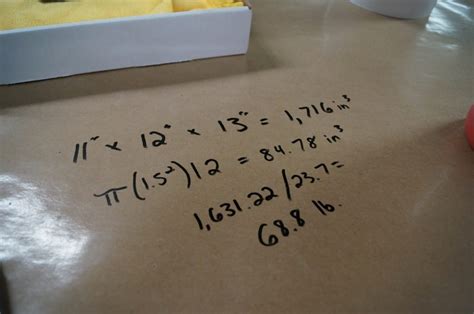 11" x 12" x 13" = 1,716 in³
π(1.5²)12 = 84.78 in³
1,631.22/23.7=
68.8 lb.